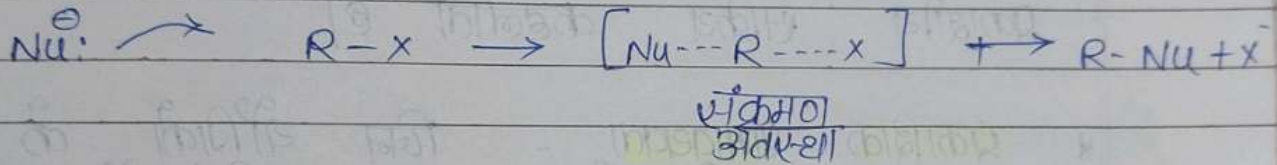 Nu:⊖ ⟶ R-X ⟶ [Nu---R----X] +⟶ R-Nu+X⁻
संक्रमण
अवस्था